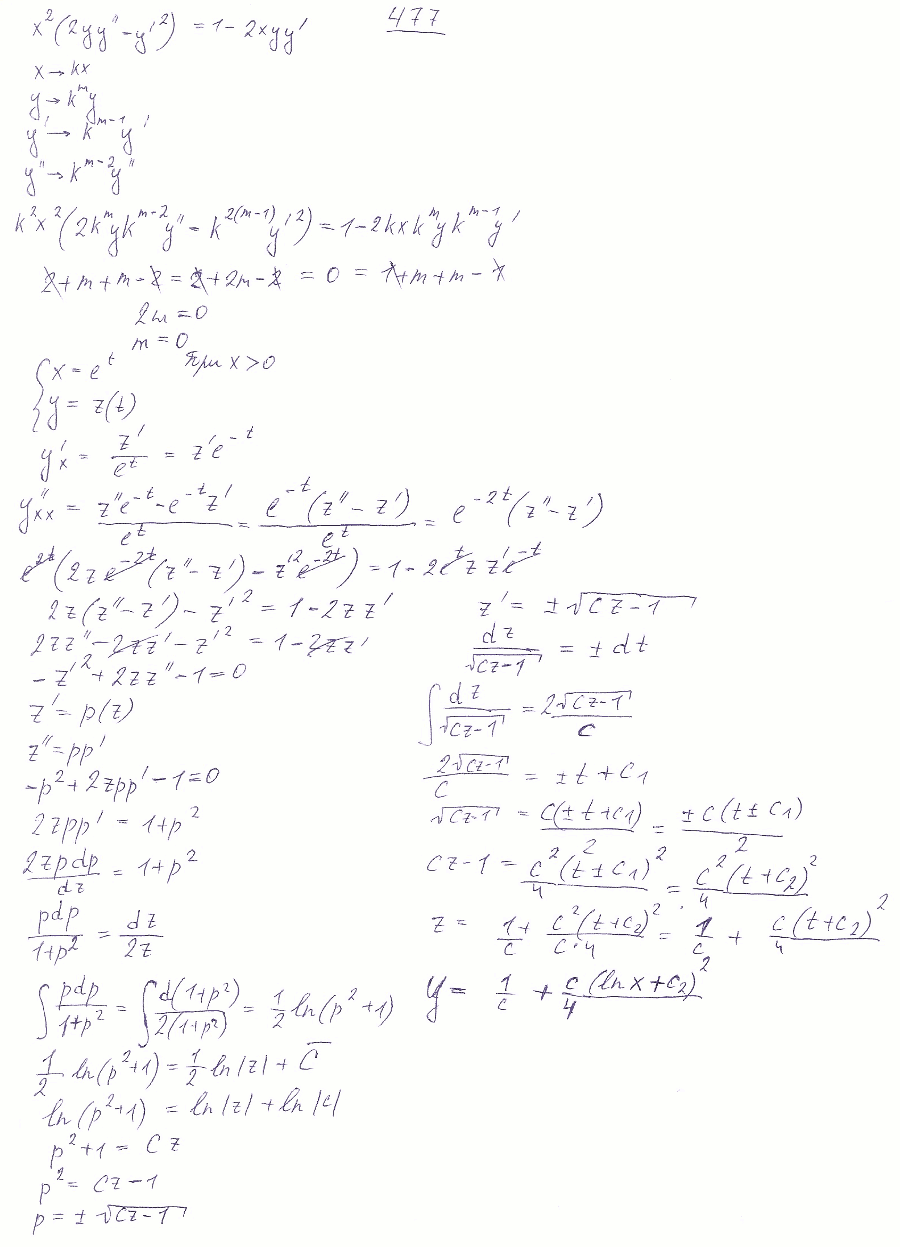 477
x²(2yy″ − y′²) = 1 − 2xyy′
x → kx
y → kᵐy
y′ → kᵐ⁻¹y′
y″ → kᵐ⁻²y″
k²x²(2kᵐykᵐ⁻²y″ − k²⁽ᵐ⁻¹⁾y′²) = 1 − 2kxkᵐykᵐ⁻¹y′
2 + m + m − 2 = 2 + 2m − 2 = 0 = 1 + m + m − 1
2m = 0
m = 0
{ x = e^t при x > 0
{ y = z(t)
y′x = z′/e^t = z′e^(−t)
y″xx = (z″e^(−t) − e^(−t)z′)/e^t = e^(−t)(z″ − z′)/e^t = e^(−2t)(z″ − z′)
e^(2t)(2ze^(−2t)(z″ − z′) − z′²e^(−2t)) = 1 − 2e^t z z′e^(−t)
2z(z″ − z′) − z′² = 1 − 2zz′
2zz″ − 2zz′ − z′² = 1 − 2zz′
−z′² + 2zz″ − 1 = 0
z′ = p(z)
z″ = pp′
−p² + 2zpp′ − 1 = 0
2zpp′ = 1 + p²
2zpdp/dz = 1 + p²
pdp/(1+p²) = dz/2z
∫ pdp/(1+p²) = ∫ d(1+p²)/2(1+p²) = ½ ln(p²+1)
½ ln(p²+1) = ½ ln|z| + C̅
ln(p²+1) = ln|z| + ln|c|
p² + 1 = Cz
p² = Cz − 1
p = ± √(Cz−1)
z′ = ± √(Cz−1)
dz/√(Cz−1) = ± dt
∫ dz/√(Cz−1) = 2√(Cz−1)/C
2√(Cz−1)/C = ± t + C₁
√(Cz−1) = C(± t + C₁)/2 = ± C(t ± C₁)/2
Cz − 1 = C²(t ± C₁)²/4 = C²(t + C₂)²/4
z = 1/C + C²(t + C₂)²/C·4 = 1/C + C(t + C₂)²/4
y = 1/C + C(ln x + C₂)²/4